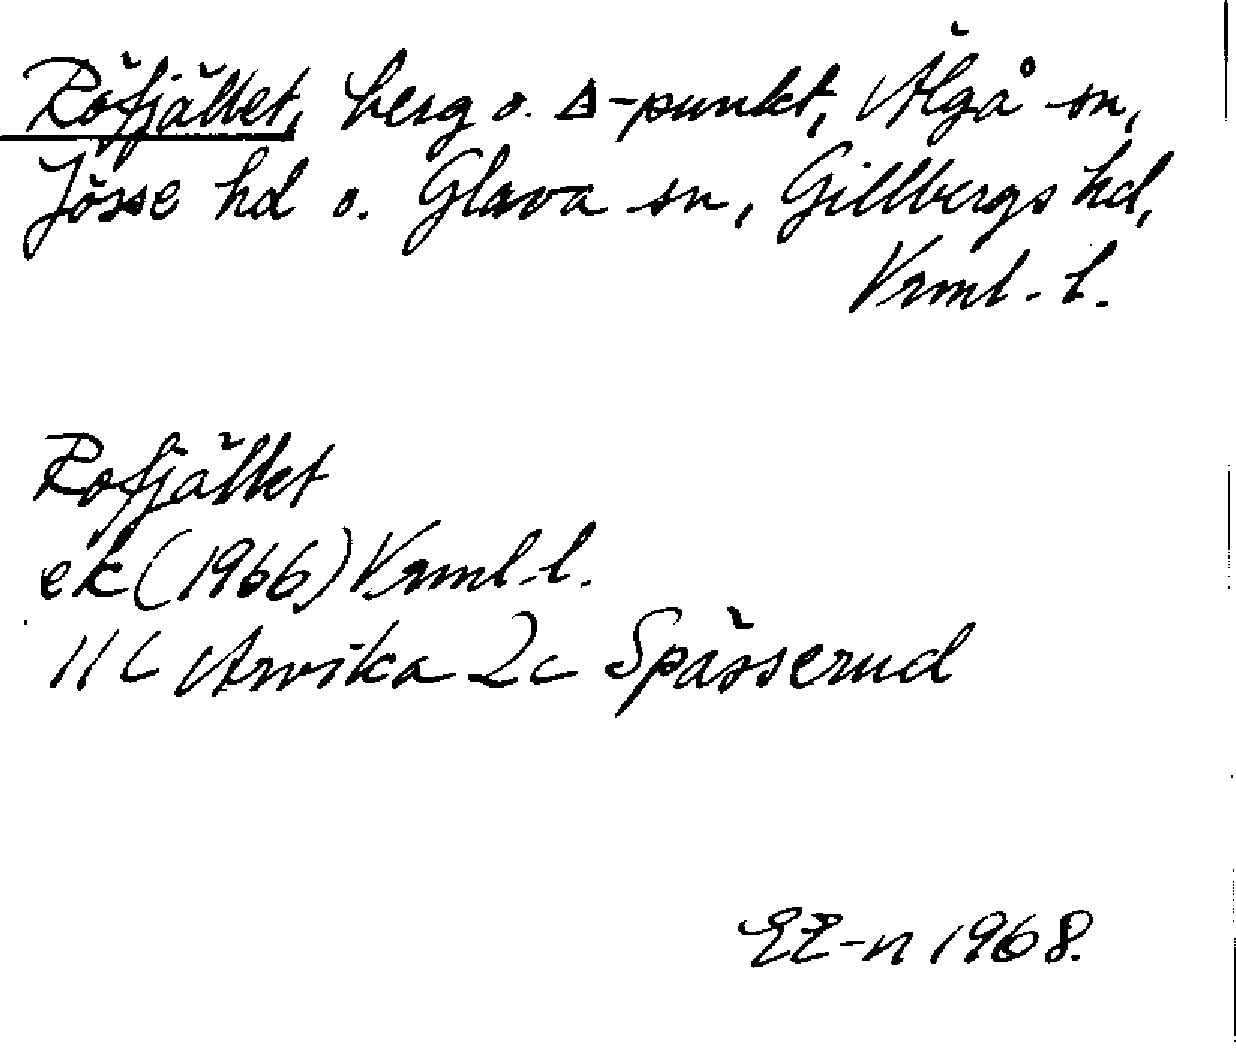 Röfjället, berg o. ∆-punkt, Älgå sn,
Jösse hd o. Glava sn, Gillbergs hd,
Vrml. l.
Rofjället
ek (1966) Vrml. l.
11C Arvika 2c Spässerud
EZ-n 1968.